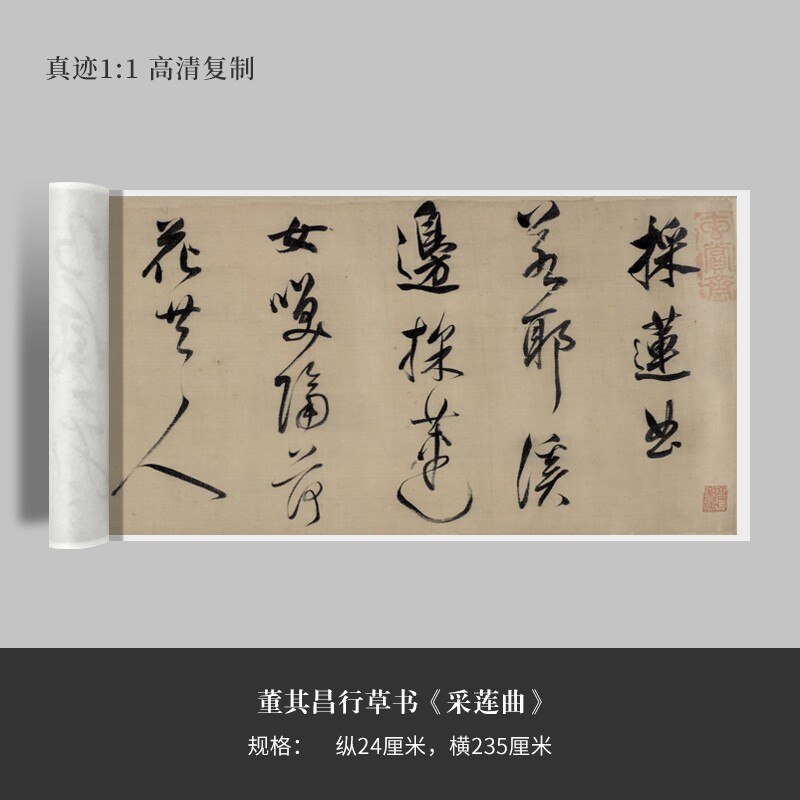 真迹1:1 高清复制
採蓮曲
若耶溪
邊採蓮
女嘆隔荷
花共人
董其昌行草书《采莲曲》
规格： 纵24厘米，横235厘米